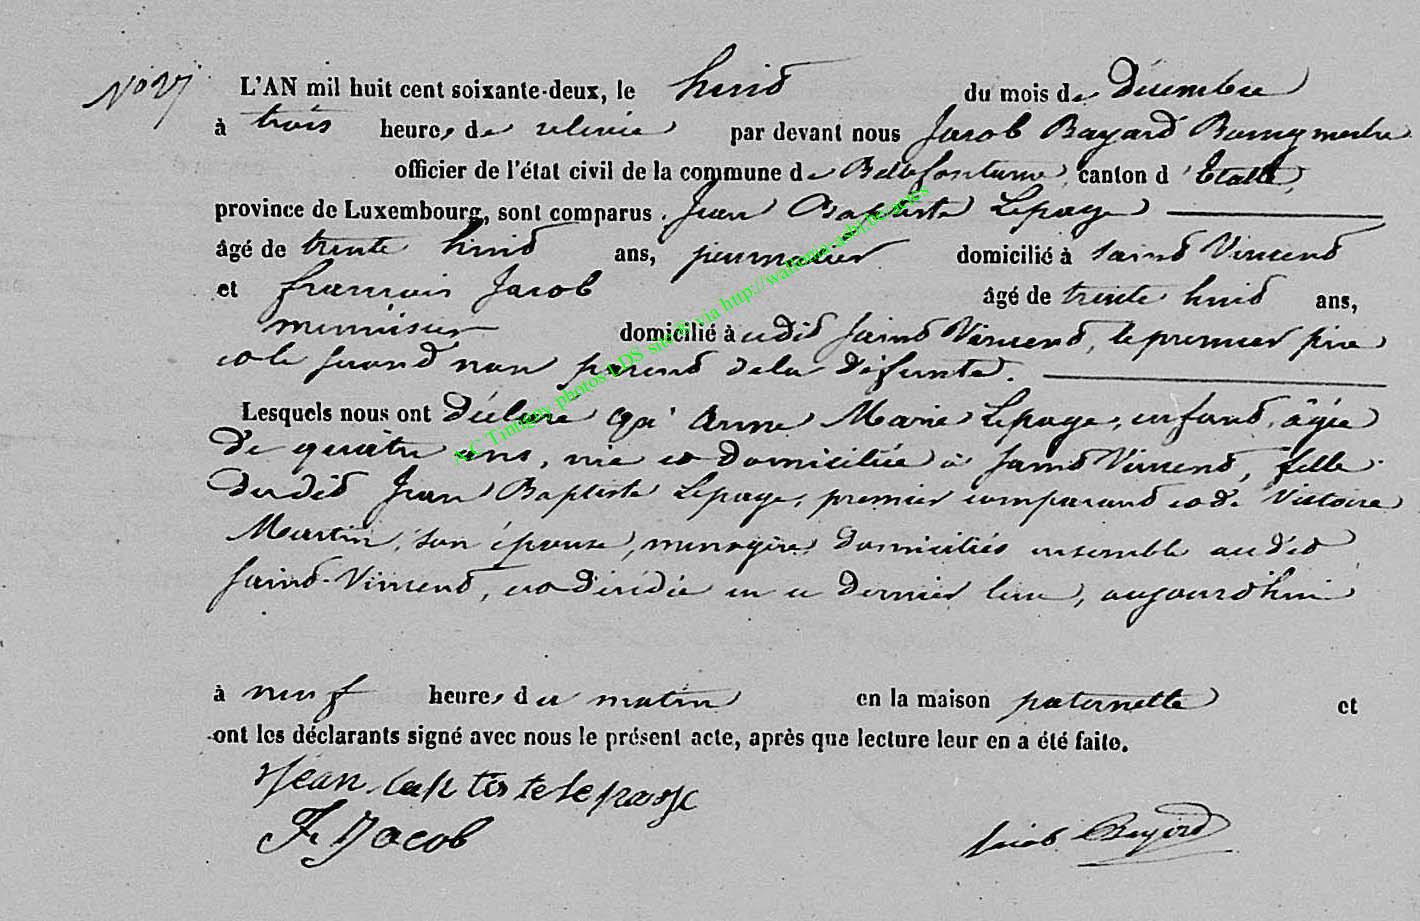 N° 27
L'AN mil huit cent soixante-deux, le huit du mois de Décembre
à trois heures de relevée par devant nous Jacob Bayard Bourgmestre
officier de l'état civil de la commune de Bellefontaine, canton d'Etalle,
province de Luxembourg, sont comparus Jean Baptiste Lepage
âgé de trente huit ans, journalier domicilié à Saint Vincent
et François Jacob âgé de trente huit ans,
menuisier domicilié à udit Saint Vincent, le premier père
et le second non parent de la défunte.
Lesquels nous ont Déclaré qu'Anne Marie Lepage, enfant, âgée
de quatre ans, née et domiciliée à Saint Vincent, fille
dudit Jean Baptiste Lepage, premier comparant et de Victoire
Martin, son épouse, ménagère domiciliés ensemble audit
Saint-Vincent, est décédée en ce dernier lieu, aujourd'hui
à neuf heures du matin en la maison paternelle et
ont les déclarants signé avec nous le présent acte, après que lecture leur en a été faite.
Jean baptiste lepage
F. Jacob
Jacob Bayard
AC Tintigny photos LDS site & via http://wallonia-asbl.be/actes